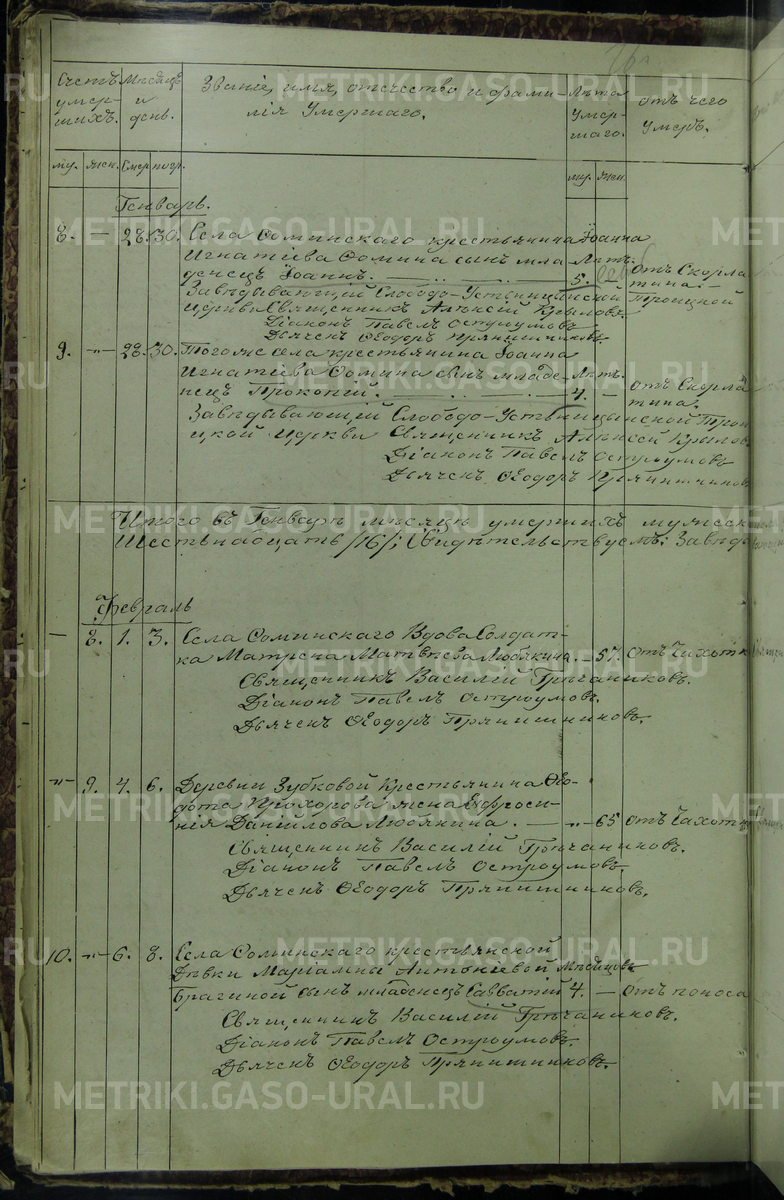 Счетъ умер- шихъ. Мѣсяцъ и день. Званіе, имя, отчество и фами- лія Умершаго. Лѣта Умер- шаго. отъ чего Умеръ.
му. жен. Смер. погр. му. жен.
Генварь.
8. — 28. 30. Села Соминскаго крестьянина Іоанна
Игнатіева Сомина сынъ мла- Лѣтъ.
денецъ Іоаннъ. 5. — Отъ Скорла
тина.
Завѣдывающій Слободо-Устьницынской Троицкой
Церкви Священникъ Алексій Крыловъ.
Діаконъ Павелъ Остроумовъ
Дьячекъ Ѳеодоръ Прянишниковъ
9. — 28. 30. Тогоже села крестьянина Іоанна
Игнатіева Сомина сынъ младе- Лѣтъ.
нецъ Прокопій. 4. — отъ Скорла
тина.
Завѣдывающій Слободо-Устьницынской Трои
цкой Церкви Священникъ Алексей Крылов
Діаконъ Павелъ Остроумовъ
Дьячекъ Ѳеодоръ Прянишниковъ
Итого въ Генварѣ мѣсяцѣ умершихъ мужеск
Шестьнадцать /16/; Свидѣтельствуемъ: Завѣд
Февраль
— 8. 1. 3. Села Соминскаго Вдова Солдат-
ка Матрена Матвѣева Любякина. — 57. отъ Чахотк
Священникъ Василій Гречаниковъ.
Діаконъ Павелъ Остроумовъ.
Дьячекъ Ѳеодоръ Прянишниковъ.
-"- 9. 4. 6. Деревни Зубковой Крестьянина Ѳео-
дота Прохорова жена Евфроси-
нія Даніилова Любякина. — -"- 65 отъ Чахотк
Священникъ Василій Гречаниковъ.
Діаконъ Павелъ Остроумовъ.
Дьячекъ Ѳеодоръ Прянишниковъ.
10. -"- 6. 8. Села Соминскаго крестьянской
Дѣвки Маріамны Антоніевой Мѣсяцовъ
Брагиной сынъ младенецъ Савватій 4. — отъ поноса
Священникъ Василій Гречаниковъ.
Діаконъ Павелъ Остроумовъ.
Дьячекъ Ѳеодоръ Прянишниковъ.
METRIKI.GASO-URAL.RU